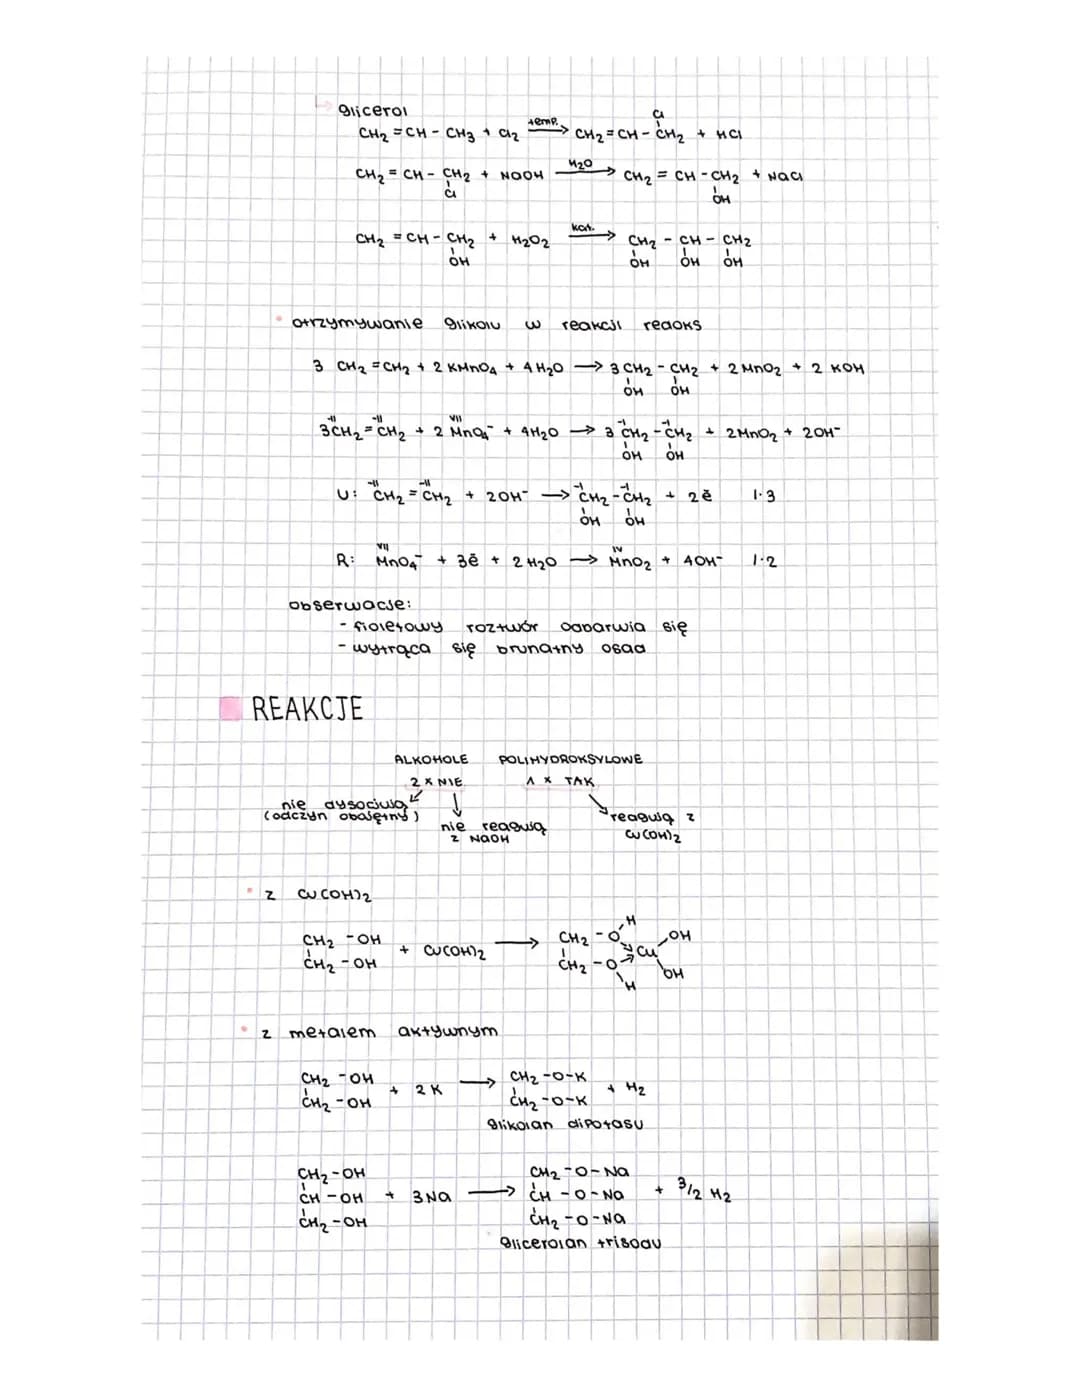 ↳ glicerol
CH₂=CH-CH₃ + Cl₂ —temp.→ CH₂=CH-CH₂ + HCl
Cl
CH₂=CH-CH₂ + NaOH —H₂O→ CH₂=CH-CH₂ + NaCl
Cl OH
CH₂=CH-CH₂ + H₂O₂ —kat.→ CH₂-CH-CH₂
OH OH OH OH
• otrzymywanie glikolu w reakcji redoks
3 CH₂=CH₂ + 2 KMnO₄ + 4 H₂O → 3 CH₂-CH₂ + 2 MnO₂ + 2 KOH
OH OH
-II -II VII -I -I
3CH₂=CH₂ + 2 MnO₄⁻ + 4H₂O → 3 CH₂-CH₂ + 2MnO₂ + 2OH⁻
OH OH
-II -II -I -I
U: CH₂=CH₂ + 2OH⁻ → CH₂-CH₂ + 2ē 1·3
OH OH
VII IV
R: MnO₄⁻ + 3ē + 2 H₂O → MnO₂ + 4OH⁻ 1·2
obserwacje:
- fioletowy roztwór odbarwia się
- wytrąca się brunatny osad
REAKCJE
ALKOHOLE POLIHYDROKSYLOWE
2 x NIE 1 x TAK
nie dysocjują (odczyn obojętny)
nie reagują z NaOH
reagują z Cu(OH)₂
• z Cu(OH)₂
CH₂-OH CH₂-O H OH
+ Cu(OH)₂ → Cu
CH₂-OH CH₂-O H OH
• z metalem aktywnym
CH₂-OH CH₂-O-K
+ 2K → + H₂
CH₂-OH CH₂-O-K
glikolan dipotasu
CH₂-OH CH₂-O-Na
CH-OH + 3Na → CH-O-Na + 3/2 H₂
CH₂-OH CH₂-O-Na
glicerolan trisodu